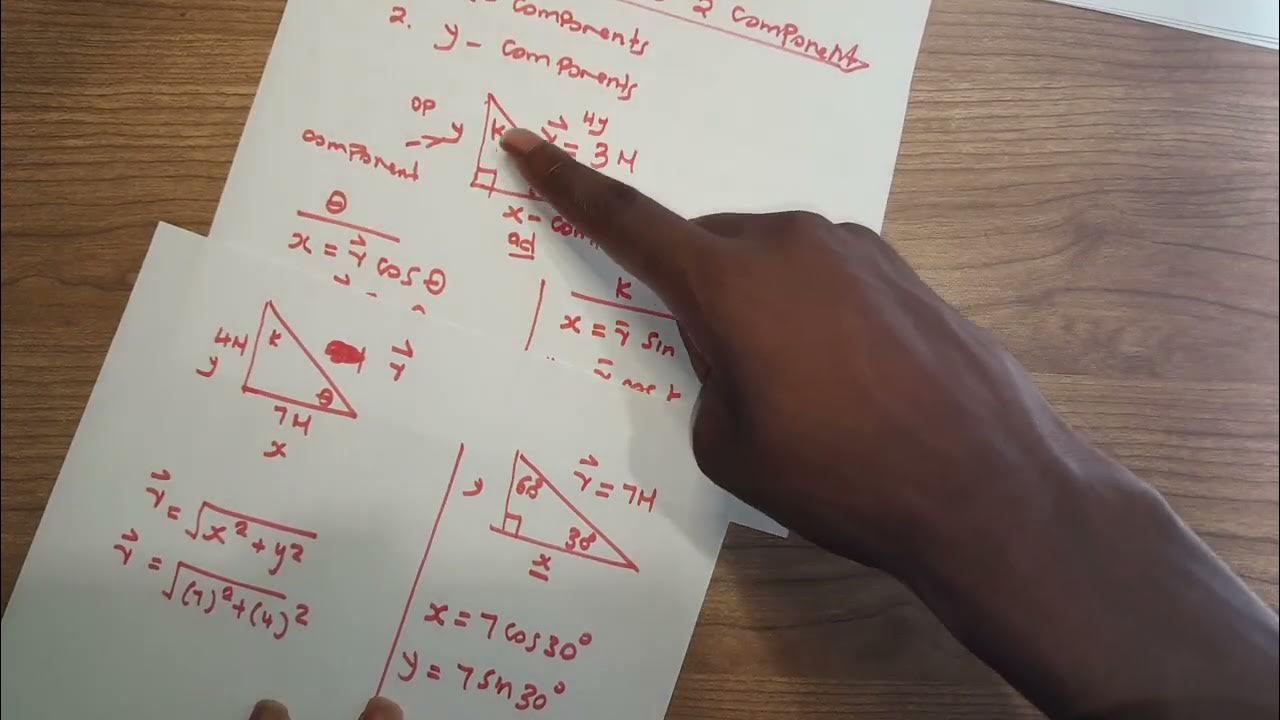 2 component
components
2. y - components
op
component → y
K
4y
r⃗ = 3M
x - com
ad
θ
x = r⃗ cos θ
K
x = r̄ sin
4M
y
K
r⃗
θ
7M
x
r⃗ = √x² + y²
r⃗ = √(7)² + (4)²
y
60°
r⃗ = 7M
30°
x
x = 7 cos 30°
y = 7 sin 30°